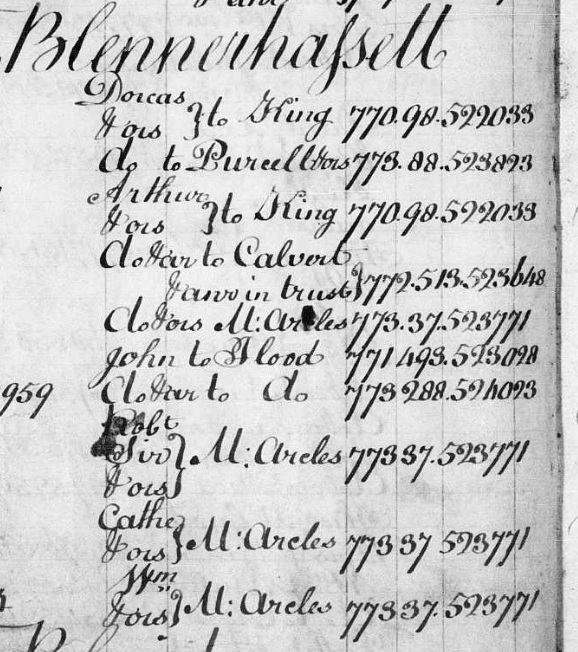 Blennerhassett
Dorcas
& ors } to King 770.98.522033
do to Purcell & ors 773.88.523823
Arthur
& ors } to King 770.98.522033
do & an.r to Calvert
& an.r in trust } 772.513.523648
do & ors M: Arcles 773.37.523771
John to Flood 771 493.523028
959 do & an.r to do 773 288.524093
Robt
& ors } M: Arcles 773 37.523771
Cathe
& ors } M: Arcles 773 37 523771
Wm
& ors } M: Arcles 773 37.523771